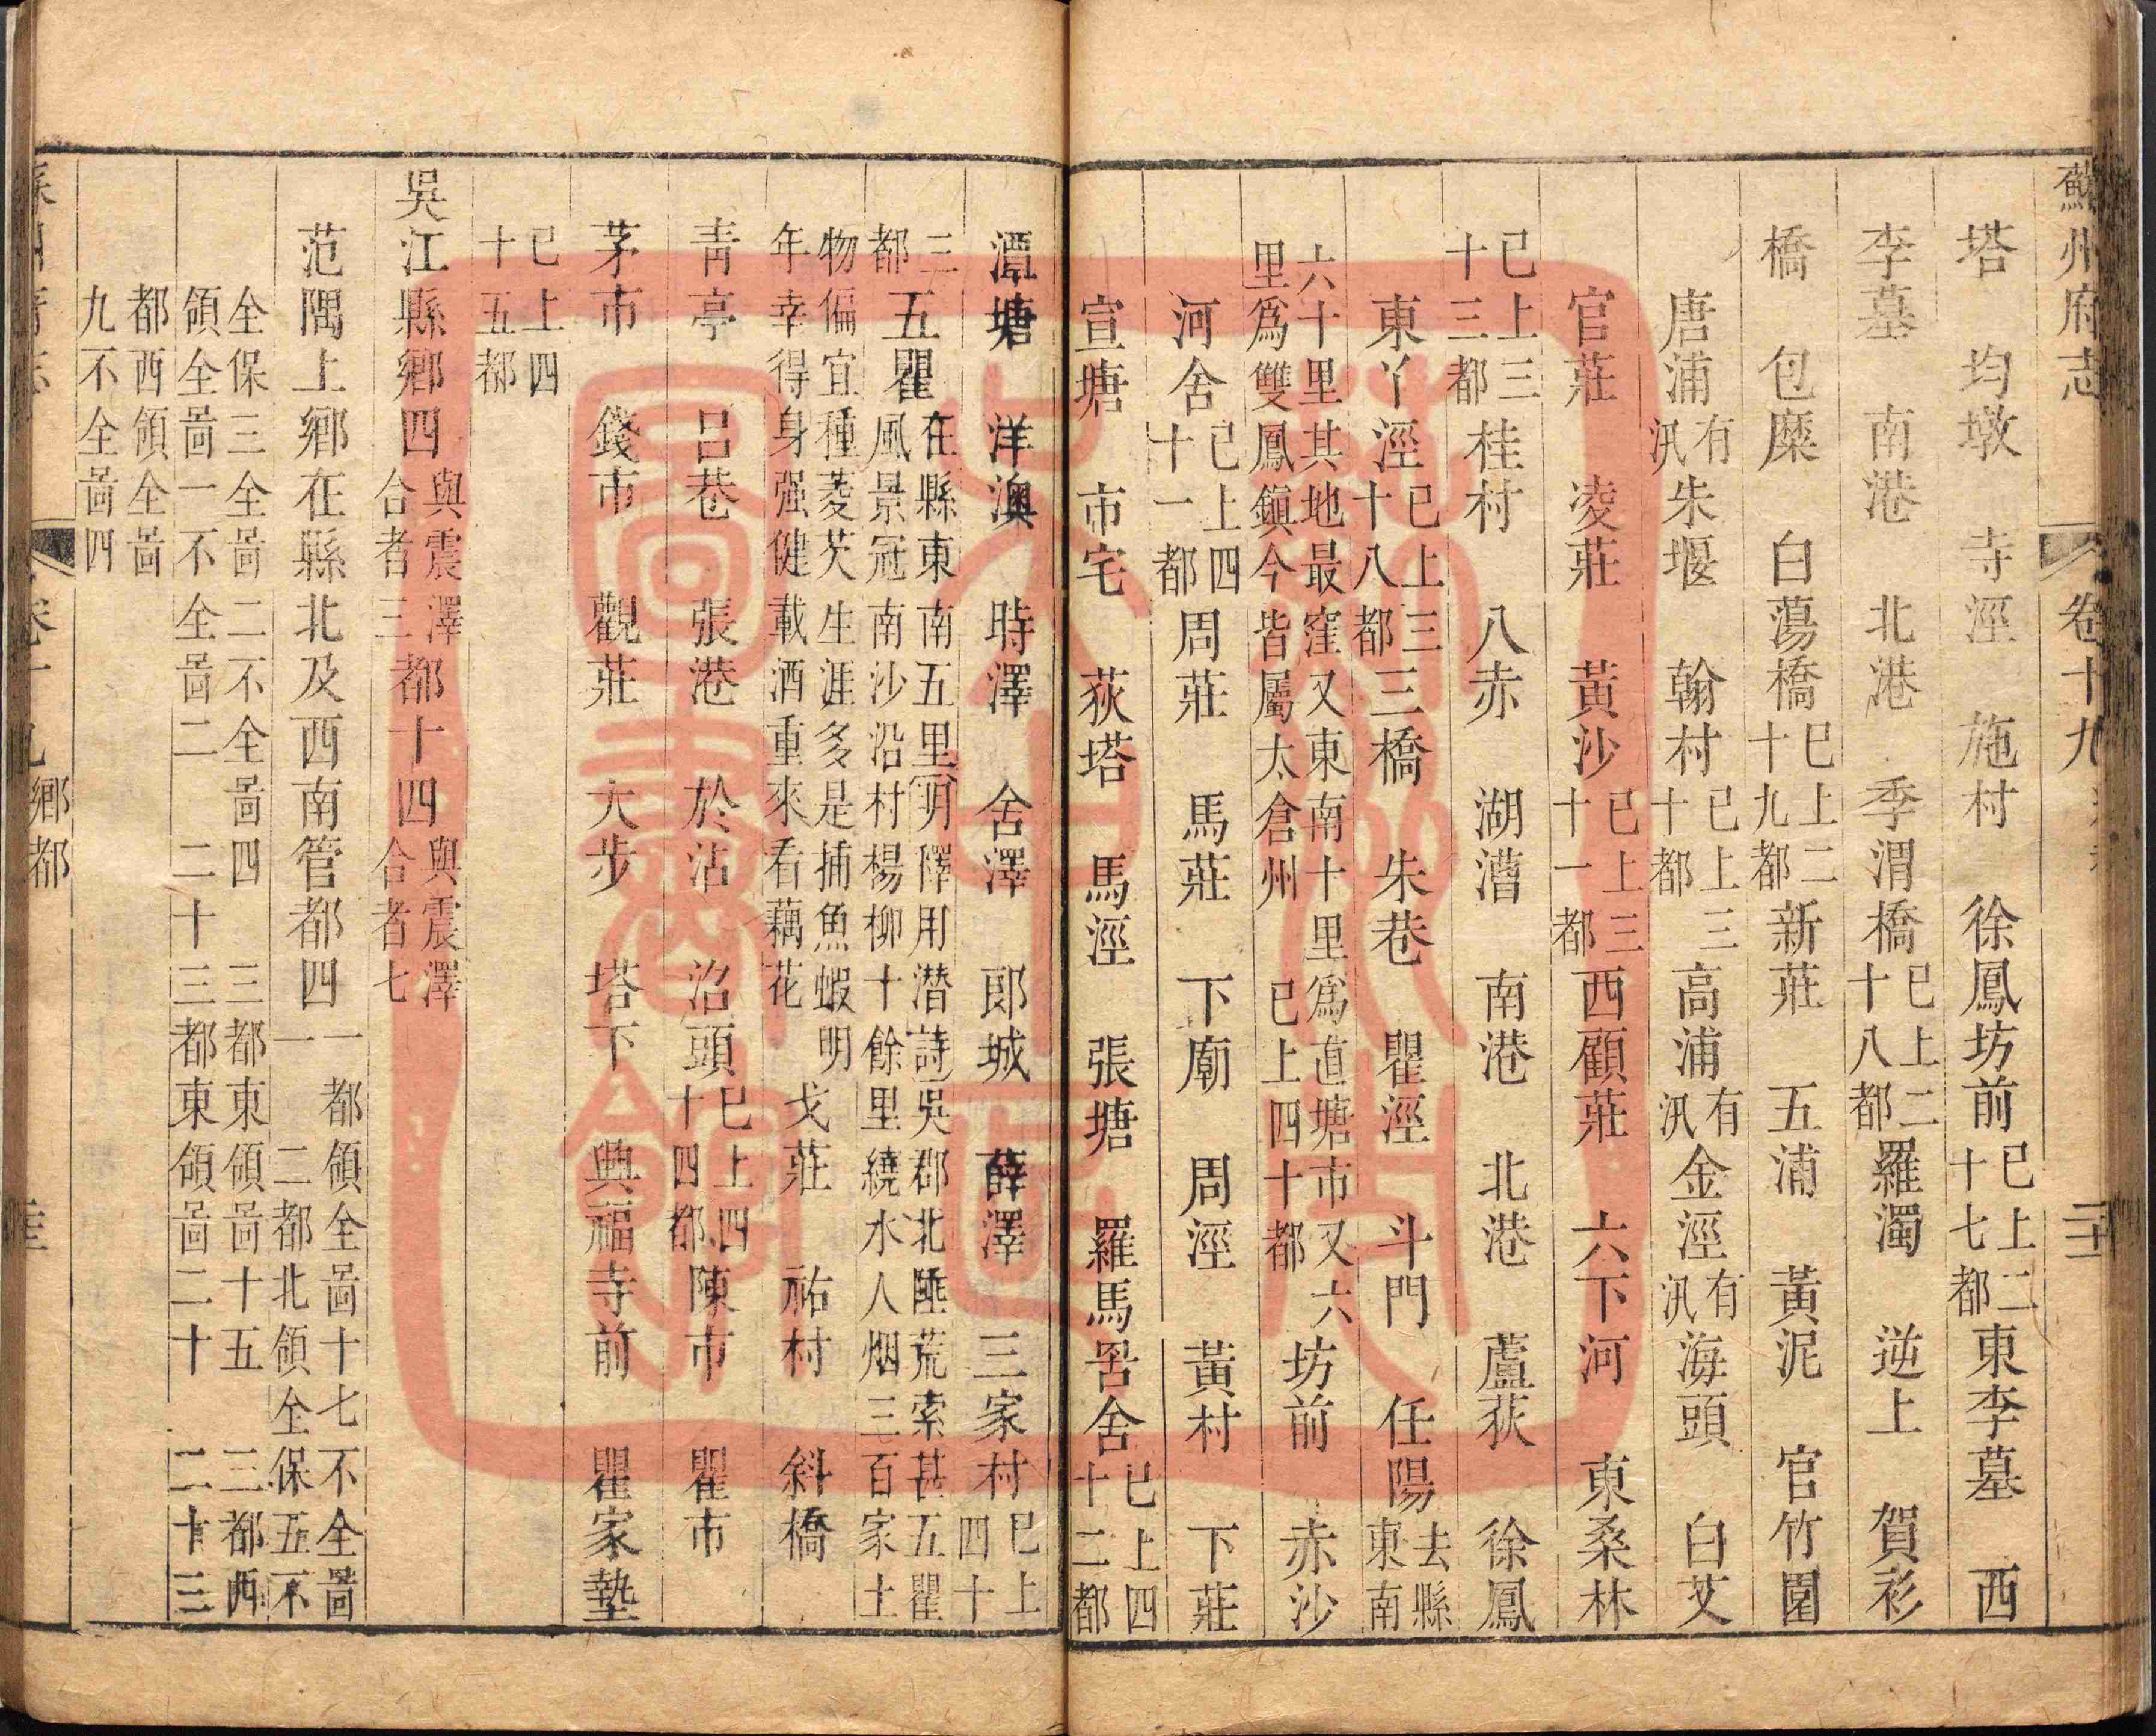 蘇州府志 卷十九
塔 均墩 寺涇 施村 徐鳳坊前已上二十七都東李墓 西
李墓 南港 北港 季渭橋已上二十八都羅濁 逆上 賀衫
橋 包麋 白蕩橋已上二十九都新莊 五浦 黃泥 官竹園
唐浦有汛朱堰 翰村已上三十都高浦有汛金涇有汛海頭 白艾
官莊 凌莊 黃沙已上三十一都西顧莊 六下河 東桑林
已上三十三都桂村 八赤 湖漕 南港 北港 蘆荻 徐鳳
東丫涇已上三十八都三橋 朱巷 瞿涇 斗門 任陽去縣東南
六十里其地最窪又東南十里爲直塘市又六里爲雙鳳鎮今皆屬太倉州 已上四十都 坊前 赤沙
河舍已上四十一都周莊 馬莊 下廟 周涇 黃村 下莊
宣塘 市宅 荻塔 馬涇 張塘 羅馬罟舍已上四十二都
潭塘 洋澳 時澤 舍澤 郎城 薛澤 三家村已上四十
三都五瞿在縣東南五里明繹用潛詩吳郡北陲荒索甚五瞿風景冠南沙沿村楊柳十餘里繞水人烟三百家土
物偏宜種菱芡生涯多是捕魚蝦明年幸得身强健載酒重來看藕花 戈莊 祐村 斜橋
青亭 呂巷 張港 於沾 沿頭已上四十四都陳市 瞿市
茅市 錢市 觀莊 大步 塔下 興福寺前 瞿家墊
已上四十五都
吳江縣鄉四與震澤合者三都十四與震澤合者七
范隅上鄉在縣北及西南管都四一都領全啚十七不全啚一 二都北領全保五不
全保三全啚二不全啚四 三都東領啚十五 三都西領全啚一不全啚二 二十三都東領啚二十 二十三
都西領全啚九不全啚四
卷十九 鄉都